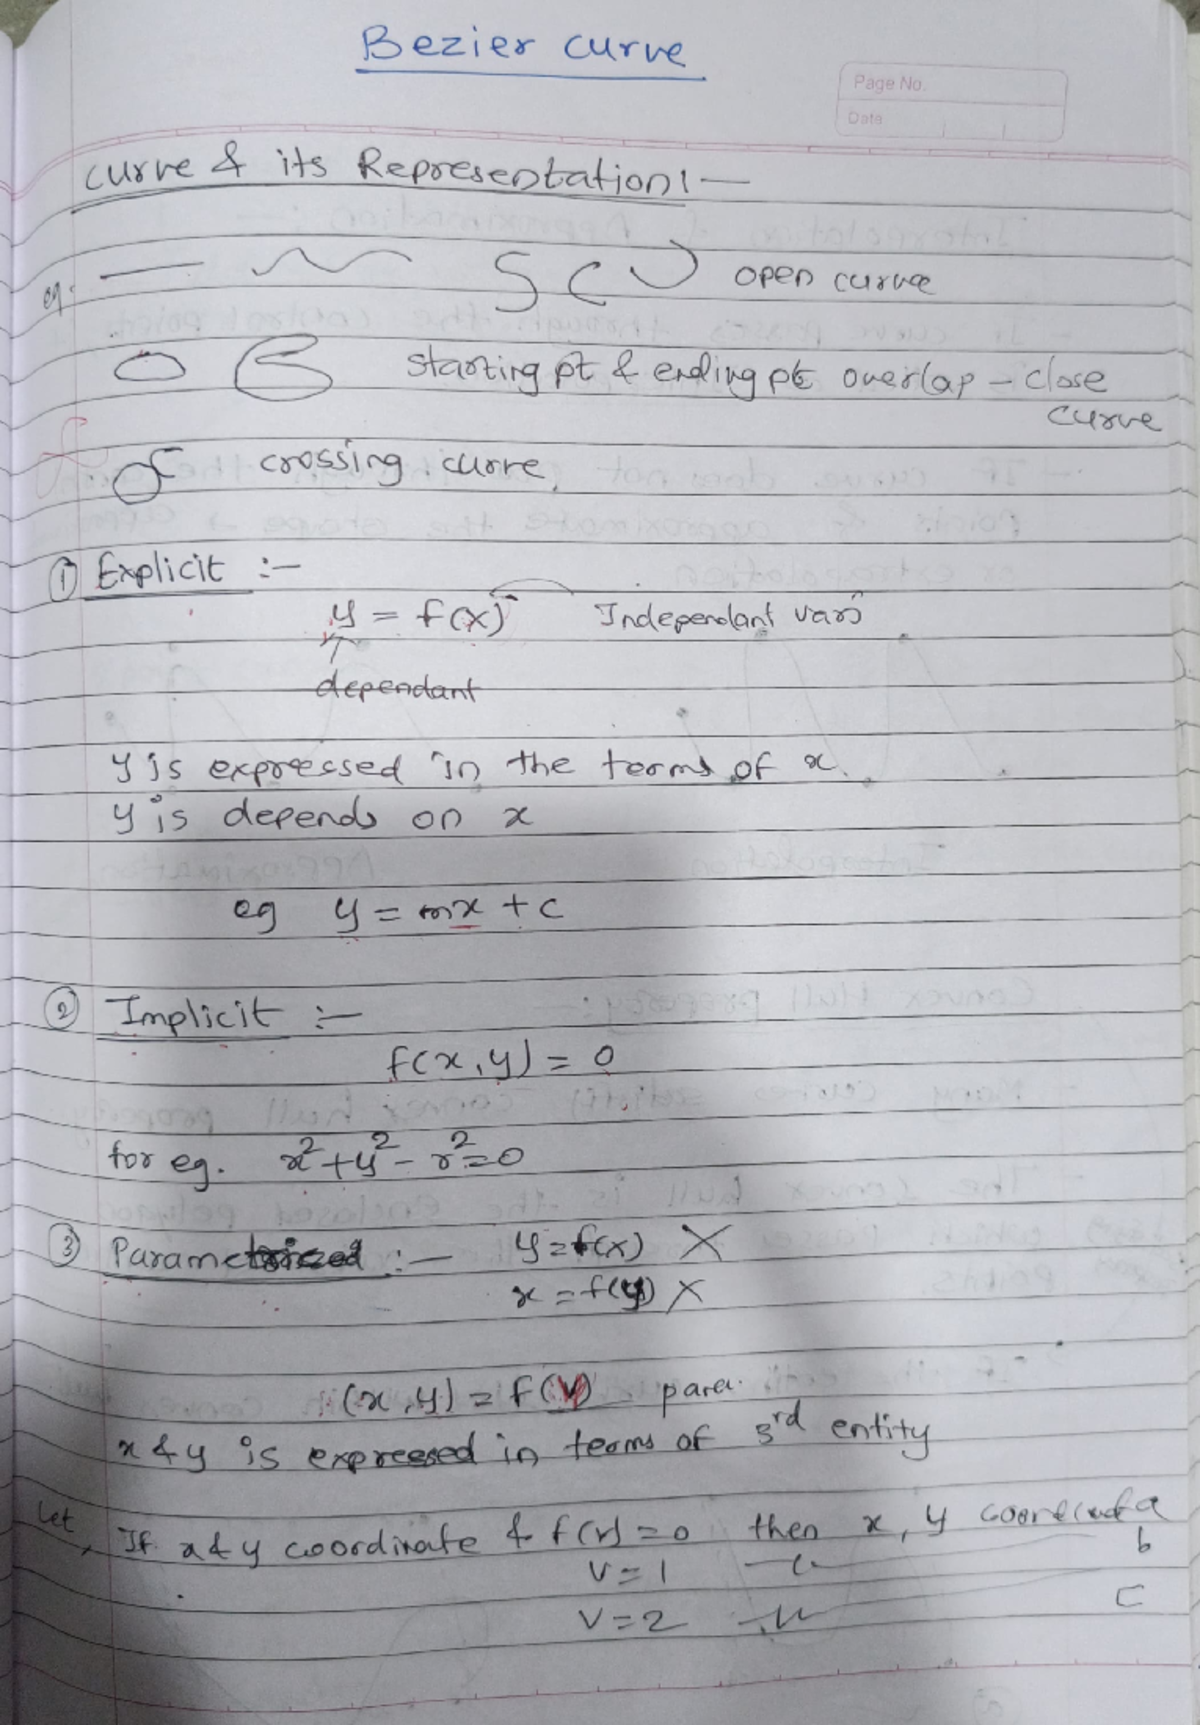 Bezier curve
Page No.
Date
curve & its Representation :—
eg. open curve
starting pt & ending pt overlap – close
curve
crossing curve
① Explicit :—
y = f(x) Independant vars
dependant
y is expressed in the terms of x.
y is depends on x
eg y = mx + c
② Implicit :—
f(x,y) = 0
for eg. x² + y² – r² = 0
③ Parametrized :— y = f(x) ✗
x = f(y) ✗
(x,y) = f(v) para.
x & y is expressed in terms of 3rd entity
Let, If x & y coordinate & f(v) = 0 then x, y a
V = 1 b
V = 2 C